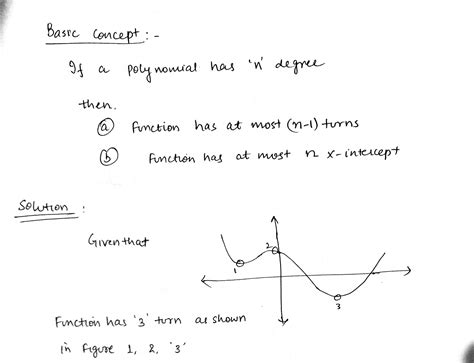 Basic concept :-
If a polynomial has 'n' degree
then.
(a) Function has at most (n-1) turns
(b) Function has at most n x-intercept
Solution :
Given that
2
1
3
Function has '3' turn as shown
in Figure 1, 2, '3'